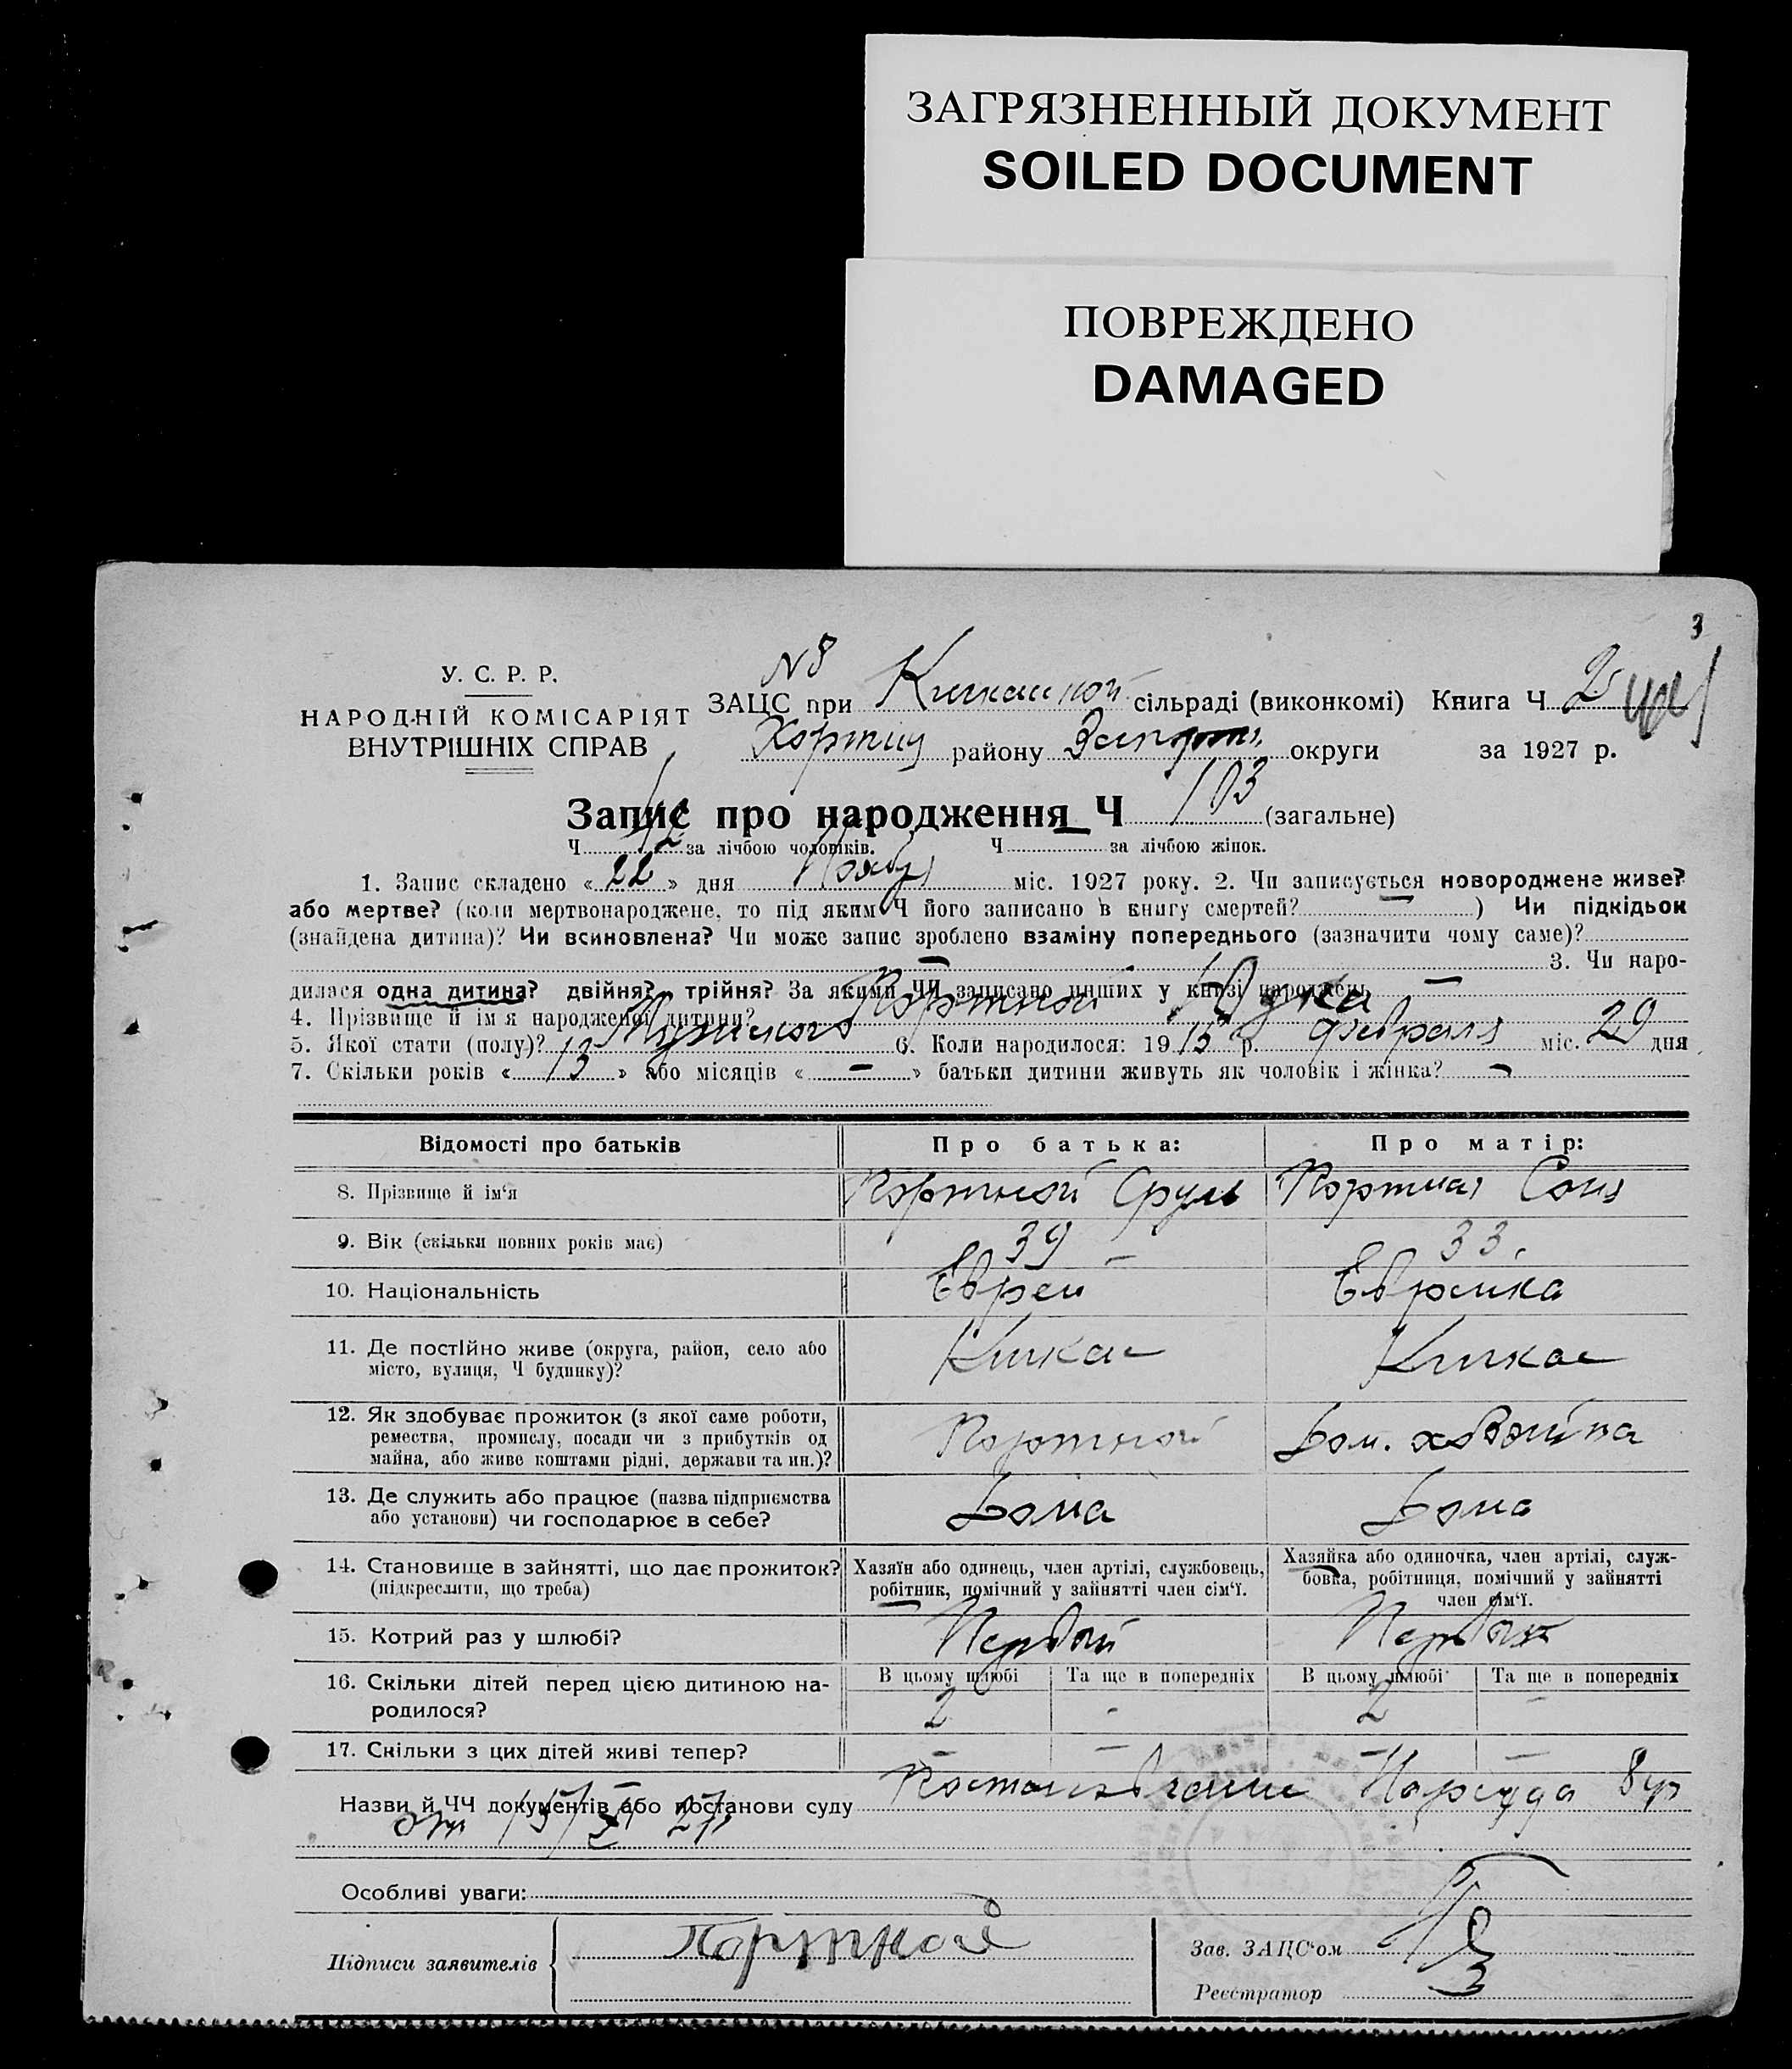 ЗАГРЯЗНЕННЫЙ ДОКУМЕНТ
SOILED DOCUMENT
ПОВРЕЖДЕНО
DAMAGED
3
У. С. Р. Р.
НАРОДНІЙ КОМІСАРІЯТ
ВНУТРІШНІХ СПРАВ
N 8
ЗАЦС при Кичкасской сільраді (виконкомі) Книга Ч 2
Хортиц района Запорож округи за 1927 р.
Запис про народження Ч 103 (загальне)
Ч за лічбою чоловіків. Ч за лічбою жінок.
1. Запис складено « 22 » дня Нояб міс. 1927 року. 2. Чи записується новороджене живе?
або мертве? (коли мертвонароджене, то під яким Ч його записано в книгу смертей? — ) Чи підкідьок
(знайдена дитина)? Чи всиновлена? Чи може запис зроблено взаміну попереднього (зазначити чому саме)?
— 3. Чи наро-
дилася одна дитина? двійня? трійня? За якими ЧЧ записано инших у книзі народжень —
4. Прізвище й ім'я народженої дитини? Портной
5. Якої стати (полу)? Мужского 6. Коли народилося: 19 15 р. февраля міс. 29 дня
7. Скільки років « 13 » або місяців « — » батьки дитини живуть як чоловік і жінка? —
Відомості про батьків Про батька: Про матір:
8. Прізвище й ім'я Портной Сруль Портная Соня
9. Вік (скільки повних років має) 39 — 33.
10. Національність Еврей Еврейка
11. Де постійно живе (округа, район, село або
місто, вулиця, Ч будинку)? Кичкас Кичкас
12. Як здобуває прожиток (з якої саме роботи,
ремества, промислу, посади чи з прибутків од
майна, або живе коштами рідні, держави та ин.)? Портной Дом. хозяйка
13. Де служить або працює (назва підприємства
або установи) чи господарює в себе? Дома Дома
14. Становище в зайнятті, що дає прожиток?
(підкреслити, що треба)
Хазяїн або одинець, член артілі, службовець,
робітник, помічний у зайнятті член сім'ї.
Хазяйка або одиночка, член артілі, служ-
бовка, робітниця, помічний у зайнятті
член сім'ї.
15. Котрий раз у шлюбі? Первый Первый
16. Скільки дітей перед цією дитиною на-
родилося?
В цьому шлюбі Та ще в попередніх В цьому шлюбі Та ще в попередніх
2 - 2 -
17. Скільки з цих дітей живі тепер? — — — —
Назви й ЧЧ документів або постанови суду Постановление Нарсуда 8 ур
от 15/XI 27 р
Особливі уваги:
Підписи заявителів Портной
Зав. ЗАЦС'ом
Реєстратор